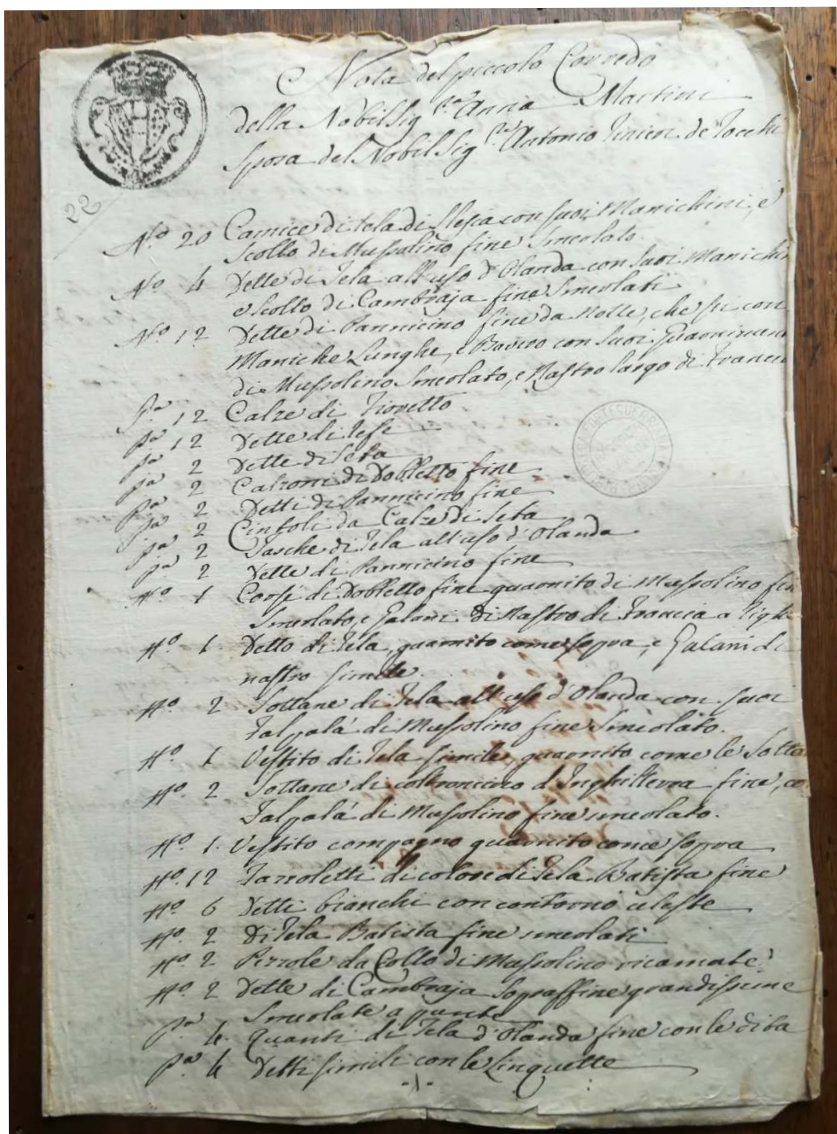 Nota del piccolo Corredo
della Nobil Sig.ra Anna Martini
sposa del Nobil Sig.r Antonio de
22
N.o 20 Camice di tela di Slesia con suoi Manichini, e
Scollo di Mussolino fine Smerlato
N.o 4 Dette di Tela all'uso d'Olanda con suoi Manichi
e Scollo di Cambraja fine Smerlati
N.o 12 Dette di Pannicino fine da Notte, che sei con
Maniche Lunghe, e Bavero con suoi
di Mussolino Smerlato, e Nastro largo di Franci
Pa 12 Calze di Fioretto
pa 12 Dette di Refe
pa 2 Dette di Seta
pa 2 Calzoni di Dobletto fine
pa 2 Detti di Pannicino fine
pa 2 Cintoli da Calze di Seta
pa 2 Tasche di Tela all'uso d'Olanda
pa 2 Dette di Pannicino fine
N.o 1 di Dobletto fine guarnito di Mussolino fin
Smerlato, e Galani di Nastro di Francia a
N.o 1. Detto di Tela, guarnito come sopra, e Galani di
nastro simile.
N.o 2 Sottane di Tela all'uso d'Olanda con suoi
Falpalà di Mussolino fine Smerlato.
N.o 1 Vestito di Tela simile guarnito come le Sotta
N.o 2 Sottane di coltroncino d'Inghilterra fine, co
Falpalà di Mussolino fine smerlato.
N.o 1. Vestito compagno guarnito come sopra
N.o 12 Fazzoletti di colore di Tela Batista fine
N.o 6 Detti bianchi con contorno celeste
N.o 2 Di Tela Batista fine smerlati
N.o 2 Pezzole da Collo di Mussolino ricamate
N.o 2 Dette di Cambraja Sopraffine grandissime
Smerlate a punte
pa 4. Guanti di Tela d'Olanda fine con le dita
pa 4 Detti simili con le Linguette
-1-